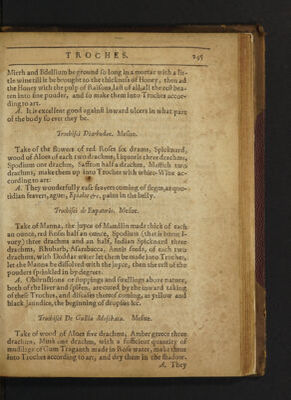 TROCHES. 255
Mirrh and Bdellium be ground so long in a mortar with a lit-
tle wine till it be brought to the thickness of Honey, then ad
the Honey with the pulp of Raisons, last of all, all the rest bea-
ten into fine pouder, and so make them into Troches accor-
ding to art.
A. It is excellent good against inward ulcers in what part
of the body so ever they be.
Trochisci Diarhodon. Mesue.
Take of the flowers of red Roses six drams, Spicknard,
wood of Aloes of each two drachms, Liquoris three drachms,
Spodium one drachm, Saffron half a drachm, Mastich two
drachms, make them up into Troches with white Wine ac-
cording to art.
A. They wonderfully ease feavers coming of flegm, as quo-
tidian feavers, agues, Epialos &c. pains in the belly.
Trochisci de Eupatorio. Mesue.
Take of Manna, the juyce of Maudlin made thick of each
an ounce, red Roses half an ounce, Spodium (that is burnt I-
vory) three drachms and an half, Indian Spicknard three
drachms, Rhubarb, Asarabacca, Annis seeds, of each two
drachms, with Dodder water let them be made into Troches,
let the Manna be dissolved with the juyce, then the rest of the
pouders sprinkled in by degrees.
A. Obstructions or stoppings and swellings above nature,
both of the liver and spleen, are cured by the inward taking
of these Troches, and diseases thereof coming, as yellow and
black jaundice, the beginning of dropsies &c.
Trochisci De Gallia Moschata. Mesue.
Take of wood of Aloes five drachms, Ambergreece three
drachms, Musk one drachm, with a sufficient quantity of
mussilage of Gum Traganth made in Rose water, make them
into Troches according to art, and dry them in the shadow.
A. They